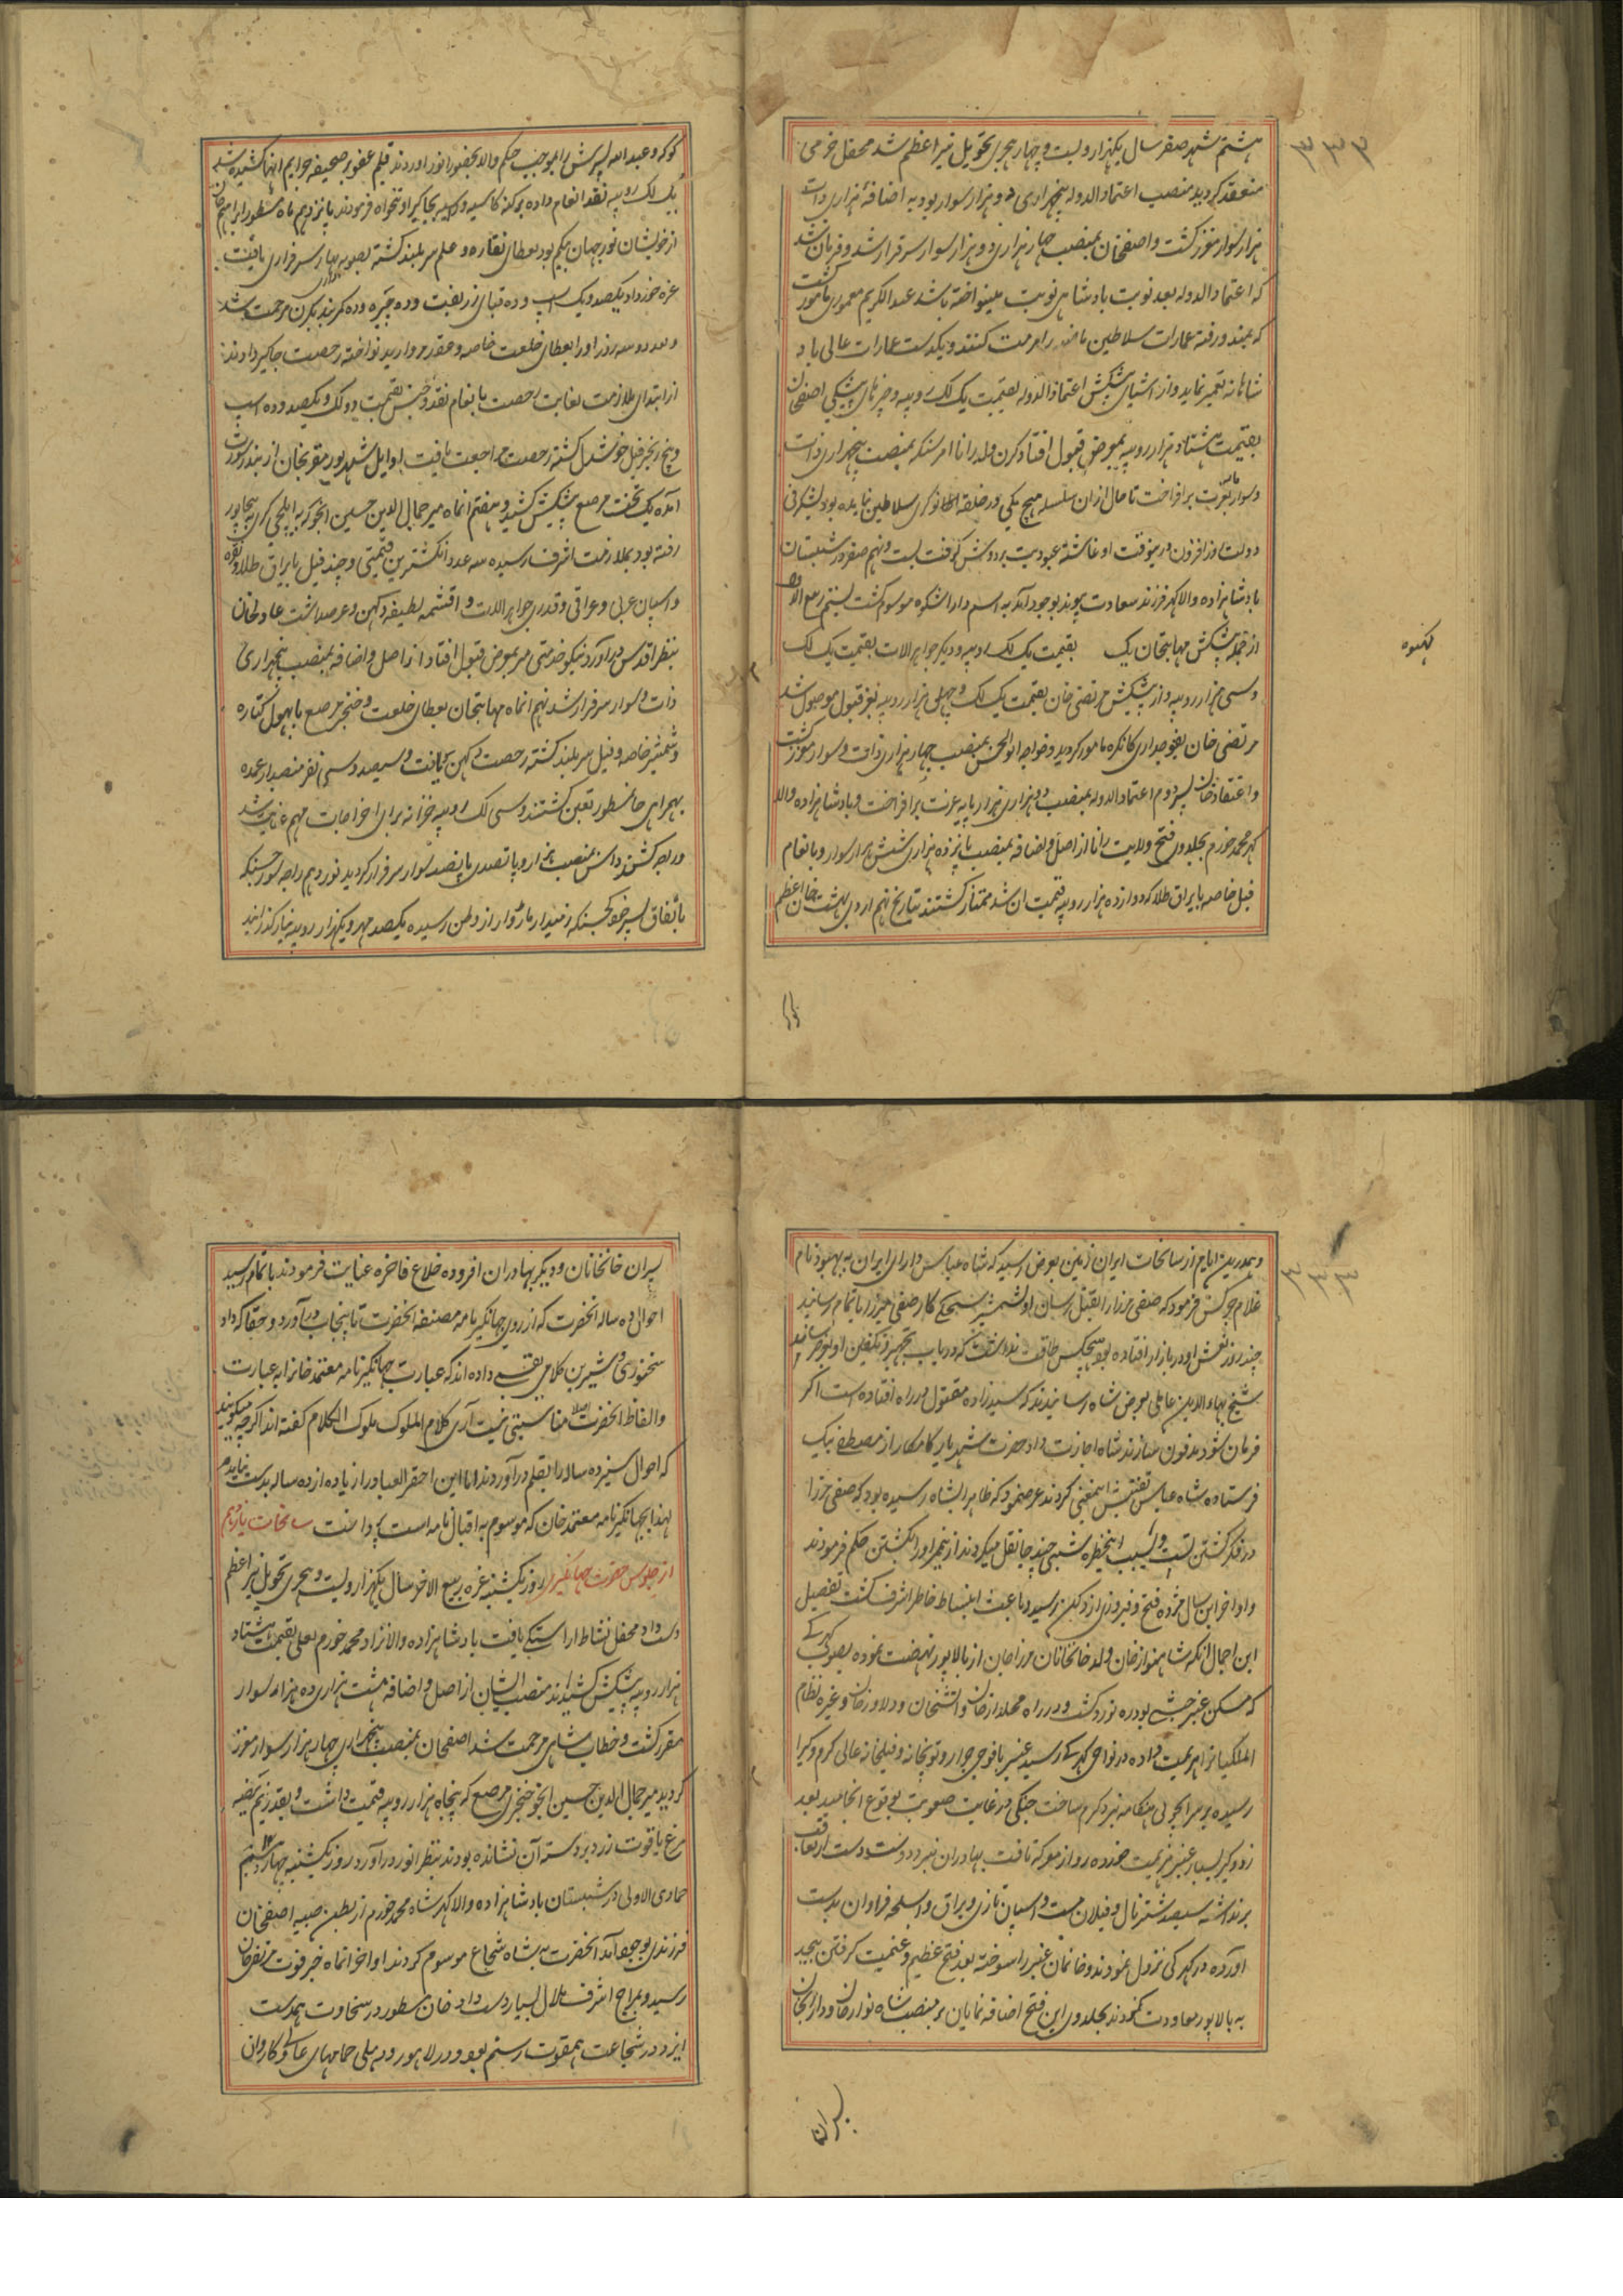 ۳۳۳
هشتم شهر صفر سال یکهزار و بیست و چهار هجری تحویل نیر اعظم شد محفل خرمی
منعقد کردید منصب اعتمادالدوله پنجهزاری دو هزار سوار بود به اضافهٔ هزاری ذات
هزار سوار معزز کشت و اصفخان بمنصب چهار هزاری دو هزار سوار سرفراز شد و فرمان شد
که اعتمادالدوله بعد نوبت بادشاهی نوبت مینواخته باشد عبدالکریم معموری مامور کشت
که بمندو رفته عمارات سلاطین ماضیه را مرمت کنند و یکدست عمارات عالی باد
شاهانه تعمیر نماید و از اشیای پیشکش اعتمادالدوله بقیمت یک لک روپیه و چیزهای پیشکی اصفخان
بقیمت هشتاد هزار روپیه بمعرض قبول افتاد کرن ولد رانا امرسنکه بمنصب پنجهزاری ذات
و سوار عزت برافراخت تا حال ازان سلسله هیچ یکی در حلقه نوکری سلاطین نیامده بود
دولت روز افزون درینوقت او غاشیهٔ عبودیت بر دوش کرفت بیست و نهم صفر در شبستان
بادشاهزاده والا کهر فرزند سعادت پیوند بوجود آمد به اسم دارا شکوه موسوم کشت بیستم ربیع الاول
از جمله پیشکش مهابتخان یک بقیمت یک لک روپیه و دیکر جواهرالات بقیمت یک لک
و سی هزار روپیه و از پیشکیش مرتضی خان بقیمت یک لک و چهل هزار روپیه بعز قبول موصول شد
مرتضی خان بفوجداری کانکره مامور کردید و خواجه ابوالحسن بمنصب چهار هزاری ذات و سوار معزز کشت
و اعتقاد خان پسر دوم اعتمادالدوله بمنصب دو هزاری هزار پایه عزت برافراخت و بادشاهزاده والا
کهر محمد خرم بجلدوی فتح ولایت رانا از اصل و اضافه بمنصب پانزده هزاری شش هزار سوار و بانعام
فیل خاصه با یراق طلا که دوازده هزار روپیه قیمت ان شد ممتاز کشتند بتاریخ نهم اردی بهشت خان اعظم
کوکه و عبدالله پسرش را بموجب حکم والا بحضور انور اوردند قلم عفو بر صحیفه جرایم انها کشیده شد
یک لک روپیه نقد انعام داده پرکنه کاسیه و بجاکیر او تنخواه فرمودند پانزدهم ماه مسطور ابراهیم خان
از خویشان نورجهان بیکم بود بعطای نقاره و علم سربلند کشته بصوبه بهار سرفرازی یافت
غره خورداد یکصد و یک اسپ و ده قبای زربفت و ده چیره و ده کمربند بکرن مرحمت شد
و بعد دو سه روز او را بعطای خلعت خاصه و عقد مروارید نواخته رخصت جاکیر دادند
از ابتدای ملازمت لغایت رخصت بانعام نقد و جنس بقیمت دو لک و یکصد و ده اسپ
و پنج زنجیر فیل خوشدل کشته رخصت مراجعت یافت اوایل شهریور مقربخان از بندر سورت
آمده یک تخت مرصع پیشکیش کشید و هفتم انماه میر جمال الدین حسین انجو که به ایلچی کری بیجاپور
رفته بود بملازمت اشرف رسیده سه عدد انکشترین قیمتی و چند فیل با یراق طلا و نقره
و اسپان عربی و عراقی و قدری جواهرالات و اقمشه لطیفه دکهن و عرضداشت عادلخان
بنظر اقدس درآورد نیکو خدمتی میر بمعرض قبول افتاد از اصل و اضافه بمنصب پنجهزاری
ذات و سوار سرفراز شد نهم انماه مهابتخان بعطای خلعت و خنجر مرصع با پهول کتاره
و شمشیر خاصه و فیل سربلند کشته رخصت دکهن یافت و سیصد و سی نفر منصبدار عمده
بهمراهی خانمسطور تعین کشتند و سی لک روپیه خزانه برای اخراجات مهم عنایت شد
و راجه کشنداس بمنصب هزار و پانصدی پانصد سوار سرفراز کردید نوزدهم راجه سورجسنکه
باتفاق پسر خود کجسنکه زمیندار ماروار از وطن رسیده یکصد مهر و یکهزار روپیه نیاز کذرانید
۳۳۴
و همدرین ایام از سانحات ایران زمین بعرض رسید که شاه عباس دارای ایران به بهبود نام
غلام چرکس فرمود که صفی مرزا را بقتل رسان او بشمشیر کار صفی میرزا باتمام رسانید
چند روز نعش او در بازار افتاده بود هیچکس طاقت نداشت که در باب تجهیز و تکفین او بعرض رساند
شیخ بهاءالدین عاملی بعرض شاه رسانیدند که سیدزاده مقتول در راه افتاده است اکر
فرمان شود مدفون سازند شاه اجازت داد حضرت شهریار کامکار از مصطفی بیک
فرستاده شاه عباس تفتیش اینمعنی کردند عرضنمود که ظاهرا بشاه رسیده بود که صفی مرزا
در فکر کشتن است و بسبب اینخطره شبی چند جا نقل میکردند ازینجهت او را بکشتن حکم فرمودند
و اواخر این سال مژده فتح و فیروزی از دکن رسید و باعث انبساط خاطر اشرف کشت تفصیل
این اجمال انکه شاهنواز خان ولد خانخانان مرزا جان از بالاپور نهضت نموده بصوب کهرکی
که مسکن عنبر حبشی بود ره نورد کشت و در راه محلدار خان و اتشخان و دلاور خان و غیره نظام
الملکیان را هزیمت داده در نواحی کهرکی رسید عنبر با فوجی جرار و توپخانه و فیلخانه عالی کرم و کیرا
رسیده بر سر انجوانی هنکامه نبرد کرم ساخت جنکی در غایت صعوبت بوقوع انجامید بعد
زد و کیر بسیار عنبر هزیمت خورده رو از معرکه تافت بهادران نبرد دوست دست از تعاقب
برنداشته سیصد شتر نال و فیلان مست و اسپان تازی و یراق و اسلحه فراوان بدست
اورده در کهرکی نزول نمودند و خانمان عنبر را سوخته بعد فتح عظیم و غنیمت کرفتن بیحد
به بالاپور معاودت کردند بجلدوی این فتح اضافه نمایان بر منصب شاه نواز خان و داراب خان
پسران
پسران خانخانان و دیکر بهادران افزوده خلاع فاخره عنایت فرمودند باتمام رسید
احوال ده ساله انحضرت که از روی جهانکیرنامه مصنفه انحضرت تا پنجاب درآورد و حقا که داد
سخنوری و شیرین کلامی داده اند که عبارت جهانکیرنامه معتمد خان را به عبارت
و الفاظ انحضرت اصلا مناسبتی نیست آری کلام الملوک ملوک الکلام کفته اند اکرچه میکویند
که احوال سیزده ساله را بقلم درآوردند اما این احقر العباد را زیاده از ده ساله بدست نیامد
لهذا بجهانکیرنامه معتمد خان که موسوم به اقبال نامه است پرداخت سانحات یازدهم
از جلوس حضرت جهانکیر روز یکشنبه غره ربیع الاول سال یکهزار و بیست و پنج هجری تحویل نیر اعظم
دست داد محفل نشاط اراستکی یافت بادشاهزاده والانژاد محمد خورم لعلی بقیمت هشتاد
هزار روپیه پیشکیش کشیدند منصب ایشان از اصل و اضافه بیست هزاری ده هزار سوار
مقرر کشت و خطاب شاهی مرحمت شد اصفخان بمنصب پنجهزاری چهار هزار سوار معزز
کردید میر جمال الدین حسین انجو خنجر مرصع که پنجاه هزار روپیه قیمت داشت و بقدر نیم بیضه
مرغ یاقوت زرد بر دسته آن نشانده بودند بنظر انور درآورد روز یکشنبه چهاردهم
جمادی الاولی در شبستان بادشاهزاده والا کهر شاه محمد خرم از بطن صبیه اصفخان
فرزندی بوجود آمد انحضرت به شاه شجاع موسوم کردند اواخر انماه خبر فوت مرتضی خان
رسید و بمزاج اشرف ملال بسیار دست داد خان مسطور در سخاوت همدست
ایزد در شجاعت همقوت رستم بود و در لاهور و دهلی حمامهای عالی و کاروان